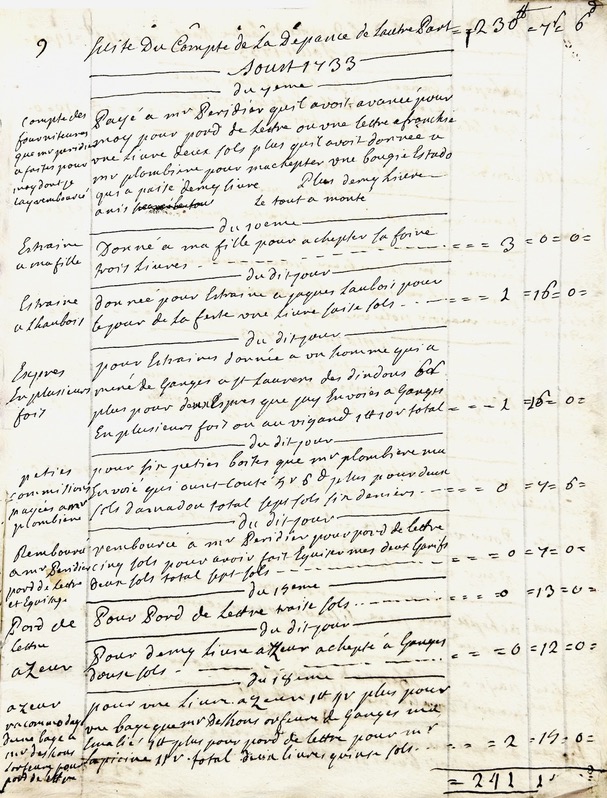 9 Suitte Du Compte de La Depance de Lautre Part = 230 tt = 7 s = 6 d
Aoust 1733
du 7eme
compte des
fournitures
que mr peridier
a faites pour
moy dont je
lay rembourcé
Payé a mr Peridier quil avoit avancé pour
moy pour pord de Lettre ou vne lettre afranchie
vne Livre deux sols plus quil avoit donnee a
mr plombiere pour machepter vne bougie
qui a paise demy livre Plus demy Livre
anis le tout a monté
du 10eme
Estraine
a ma fille
Donné a ma fille pour achepter La foire
trois Livres = 3 = 0 = 0 =
du dit jour
Estraine
a Lhaubois
donneé pour Estraine a jaques Laubois pour
le jour de la feste vne Livre saise sols = 1 = 16 = 0 =
du dit jour
Expres
En plusieurs
fois
pour Estraines donnée a vn homme qui a
mené de Ganges a st Laurens des dindons 6 d
plus pour deux Expres que jay Envoiés a Ganges
En plusieurs fois ou au vigand 1 tt 10 s total = 1 = 16 = 0 =
du dit jour
peties
commitions
payées a mr
plombiere
pour six peties boites que mr plombière ma
Envoié qui ount Couté 5 s 6 d plus pour deux
sols damadou total sept sols six deniers = 0 = 7 = 6 =
du dit jour
Rembourcé
a mr Peridier
pord de Lettre
et Equisage
rembourcé a mr Peridier pour pord de lettre
cinq sols pour avoir fait Equiser mes deux Ganifs
deux sols total sept sols = 0 = 7 = 0 =
du 15eme
Pord de
lettre
Pour Pord de Lettre traise sols = 0 = 13 = 0 =
du dit jour
azeur
Pour demy Livre azeur achepté à Ganges
douse sols = 0 = 12 = 0 =
du 18eme
azeur
racommodage
dune bage a
mr deshons
orfeuvre pour
pord de lettre
pour vne Livre azeur 1 tt 4 s plus pour
vne bage que mr deshons orfeuvre de Ganges
plus pour pord de lettre pour mr
Lapicine 11 s total deux livres quinse sols = 2 = 15 = 0 =
= 241 1 s